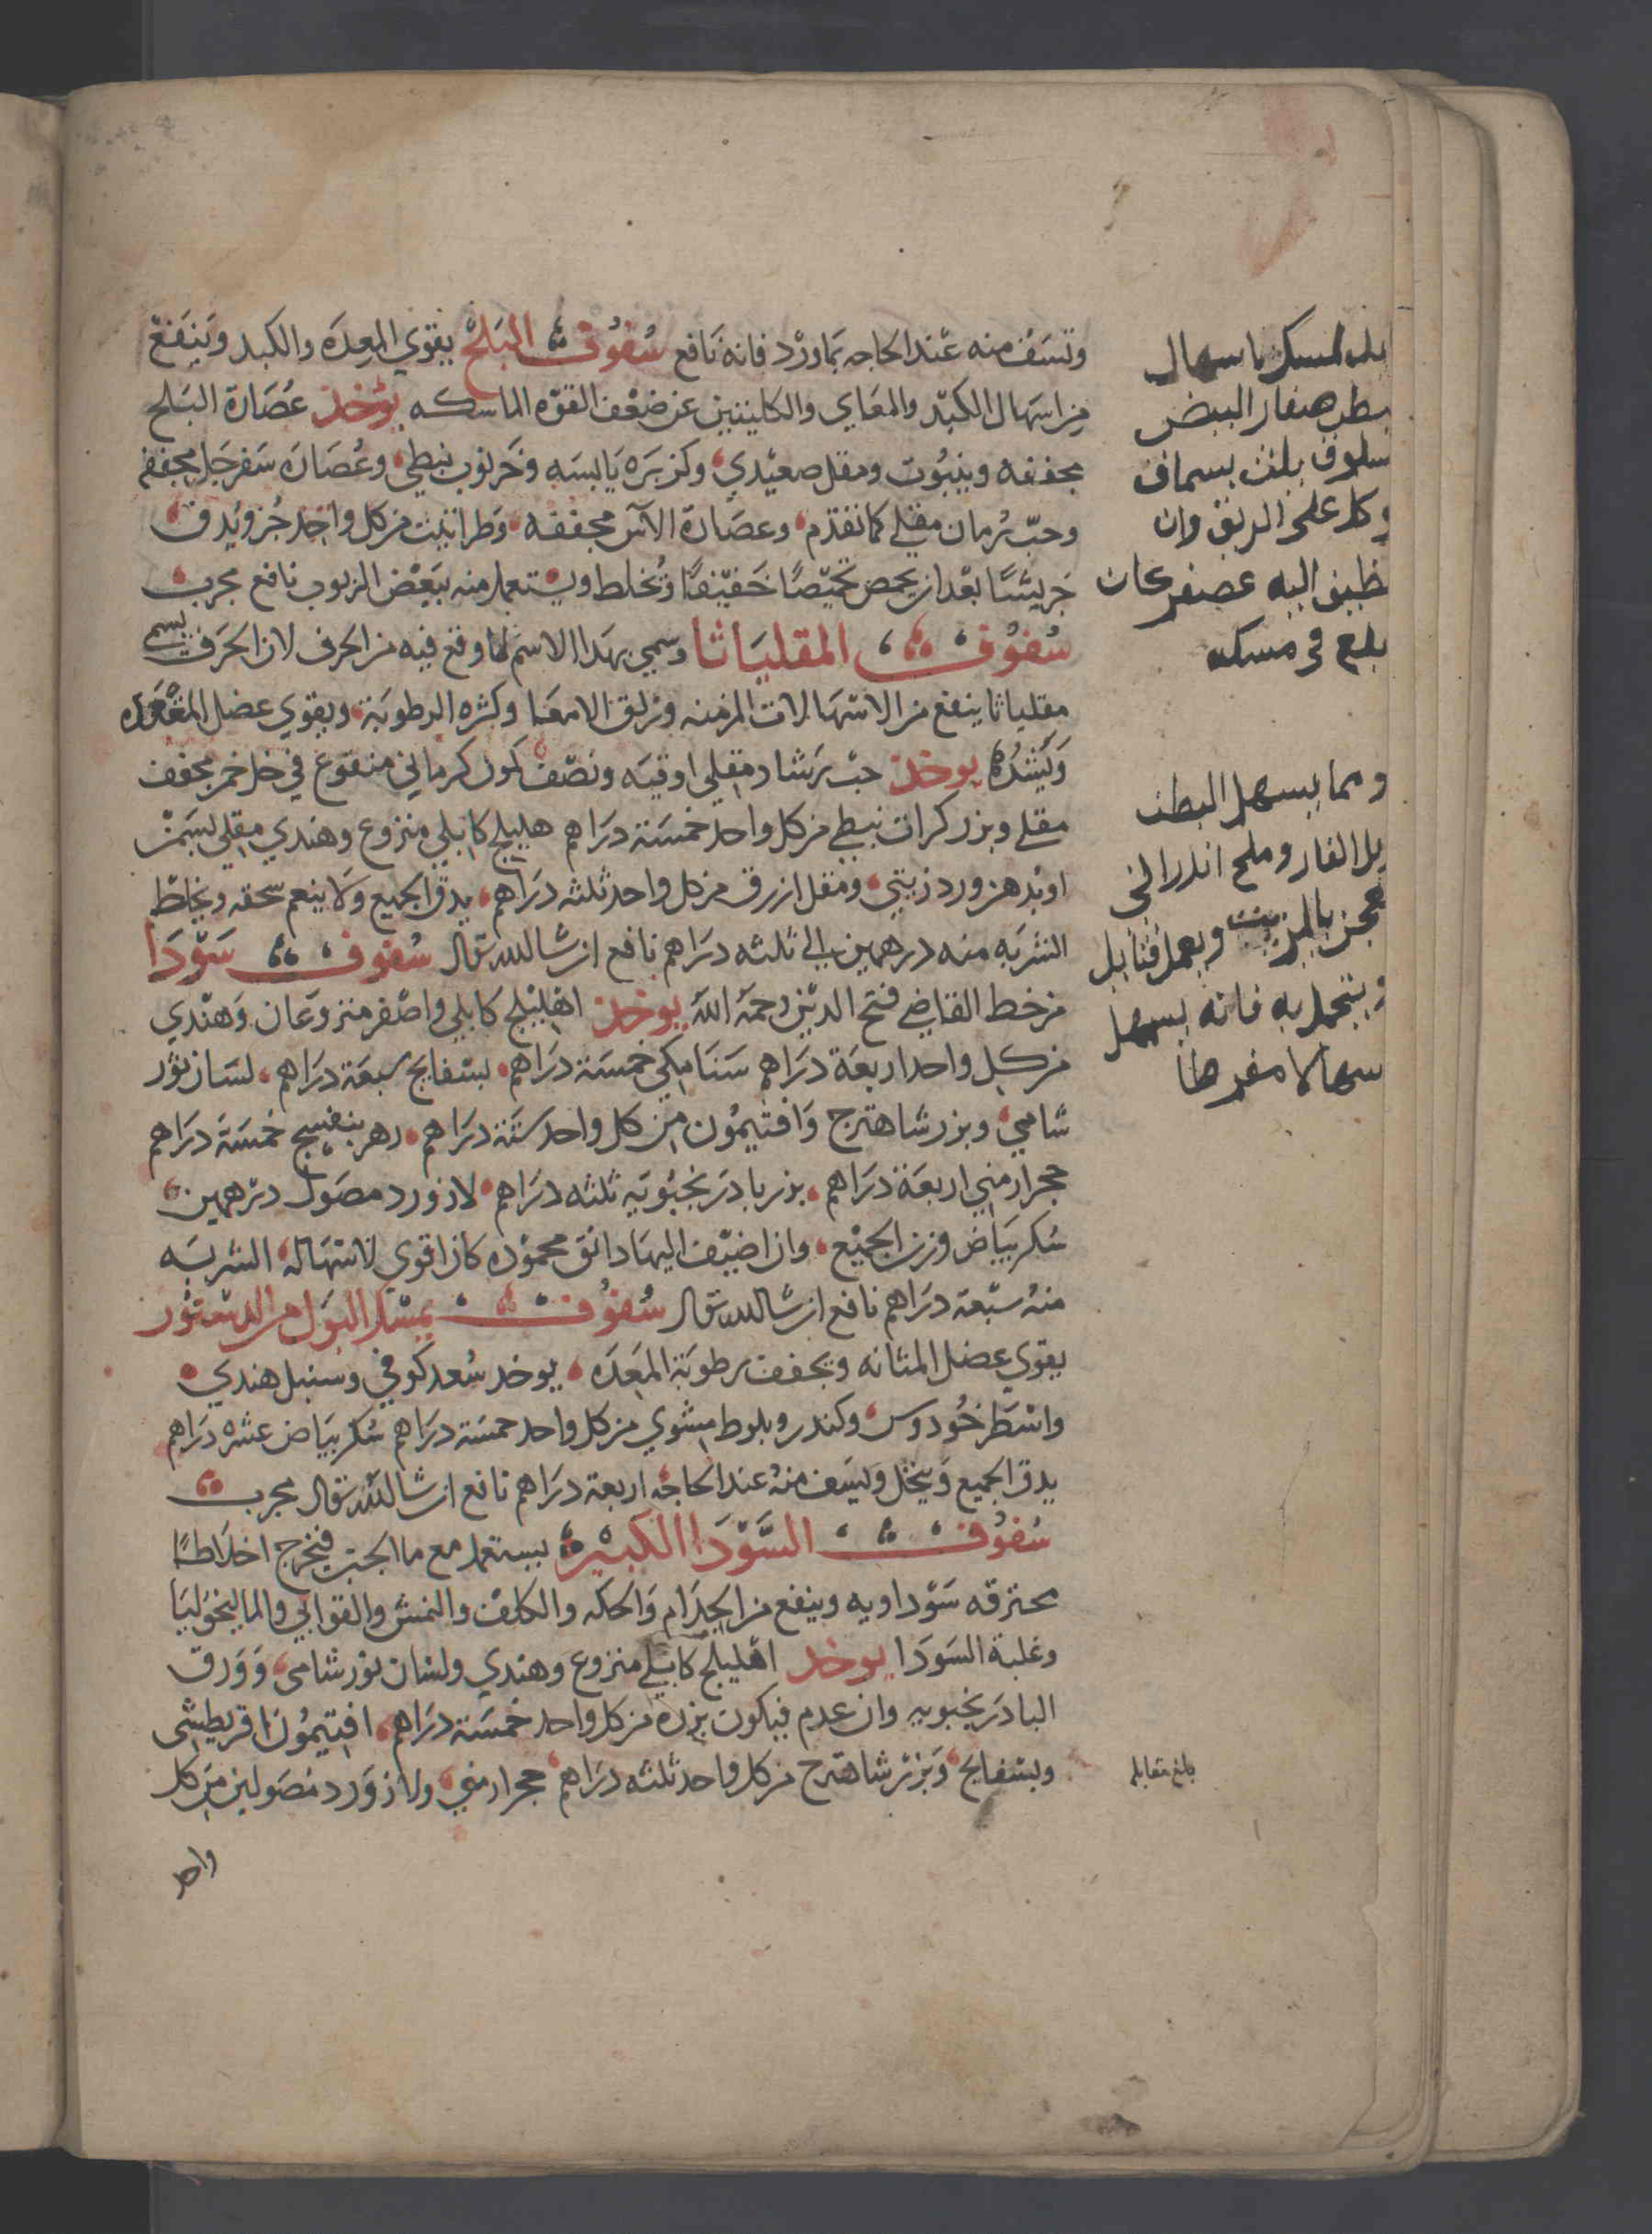 وتسَف منه عند الحاجه بماورد فانه نافع سُفوف البَلح يقوي المعدَه والكبد وينفع
من اسهال الكبد والمعَاي والكليتين عن ضعف القوّه الماسكه يؤخذ عُصَارة البَلح
مجففه وينبُوت ومقل صعيدي وكزبَره يَابسَه وخرنوب نبطي وعُصَارَه سَفرجَل مجففه
وحبّ رُمان مقلي كما تقدم وعصَارة الآس مجففه وطراثيث من كل واحد جُزو يُدق
جَريشًا بعْد ان يحمص تحميصًا خَفيفًا وتُخلط ويستعمل منه ببَعْض الربوب نافع مجرب
سُفوُف المقليَاثا وسمي بهذا الاسم لما وقع فيه من الحرف لان الحَرف يسم
مقلياثا ينفع من الاسهالات المزمنه وزلق الامعَا وكثره الرطوبَة ويقوي عضل المقعَده
وَيَشُدُهُ يوخذ حبّ رَشاد مقلي اوقيَه ونصْف كمون كرماني منقوع في خل خمر مجفف
مقلي وبزر كراث نبطي من كل واحد خمسَة درَاهم هليلج كابلي منزوع وهندي مقلي بسَمْن
او بُدهن ورد زيتي ومقل ازرق من كل واحد ثلثه درَاهم يدق الجميع ولا ينعم سحقه ويخلط
الشربَه منه درهمين الي ثلثه درَاهم نافع ان شا الله تعالى سُفوف سَوْدَا
من خط القاضي فتح الدين رحمَه اللهَ يوخذ اهليلج كابلي واصْفر منزوعَان وَهنْدي
من كل واحد اربعَة درَاهم سَنَا مكي خمسَة درَاهم بسفايج سبعَة درَاهم لسَان ثور
شامي وبزر شاهترج وَافتيمُون من كل واحد ستة درَاهم زهر بنفسج خمسَة درَاهم
حجر ارمني اربعَة درَاهم بزر بادرَنجبُويَه ثلثه درَاهم لازورد مصَول درهمين
سُكر بيَاض وزن الجميْع وان اضيْف اليهَا دانق محموده كان اقوي لاسهَاله الشربَه
منهُ سبْعة درَاهم نافع ان شا الله تعالى سُفوُف يمسْك البَول من الدستور
يقوي عضل المثانه ويجفف رطوبَة المعَدَه يوخد سُعد كوفي وسنبل هندي
واسْطَوخُودوس وكندر وبلوط مشوي من كل واحد خمسَة درَاهم سُكر بيَاض عشره درَاهم
يدق الجميع وَينخل وَيسَف منهُ عند الحاجه اربعة درَاهم نافع ان شا الله تعالى مجرب
سُفوُف السَّوْدَا الكبير يستعمل مع ما الجبن فيخرج اخلاطًا
محترقه سَوْداويه وينفع من الجذَام وَالحكه والكلف والنمش والقوابي والماليخوليَا
وغلبة السَودَا يوخد اهليلج كابلي منزوع وهندي ولسان ثور شامي وَوَرق
البادرَنجبوبيه وان عدم فيكون بزره من كل واحد خمسَة درَاهم افتيمُون اقريطشي
وبسْفايج وَبزرْ شاهترج من كل واحد ثلثه درَاهم حجر ارمني ولازوَرد مصَولين من كل
واحد
صفار البيض
بسماق
وكل على الريق وان
اليه عصفر كان
بلع في مسكه
ومما يسهل البطن
زبل الفار وملح اندراني
يعجن بالزيت ويعمل فتايل
ويتحمل به فانه يسهل
اسهالا مفرطا
بلغ مقابله